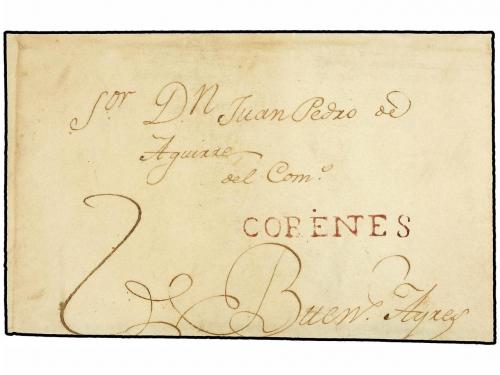 Sor Dn Juan Pedro de
Aguirre
del Como
CORENTES
2 Buens Ayres